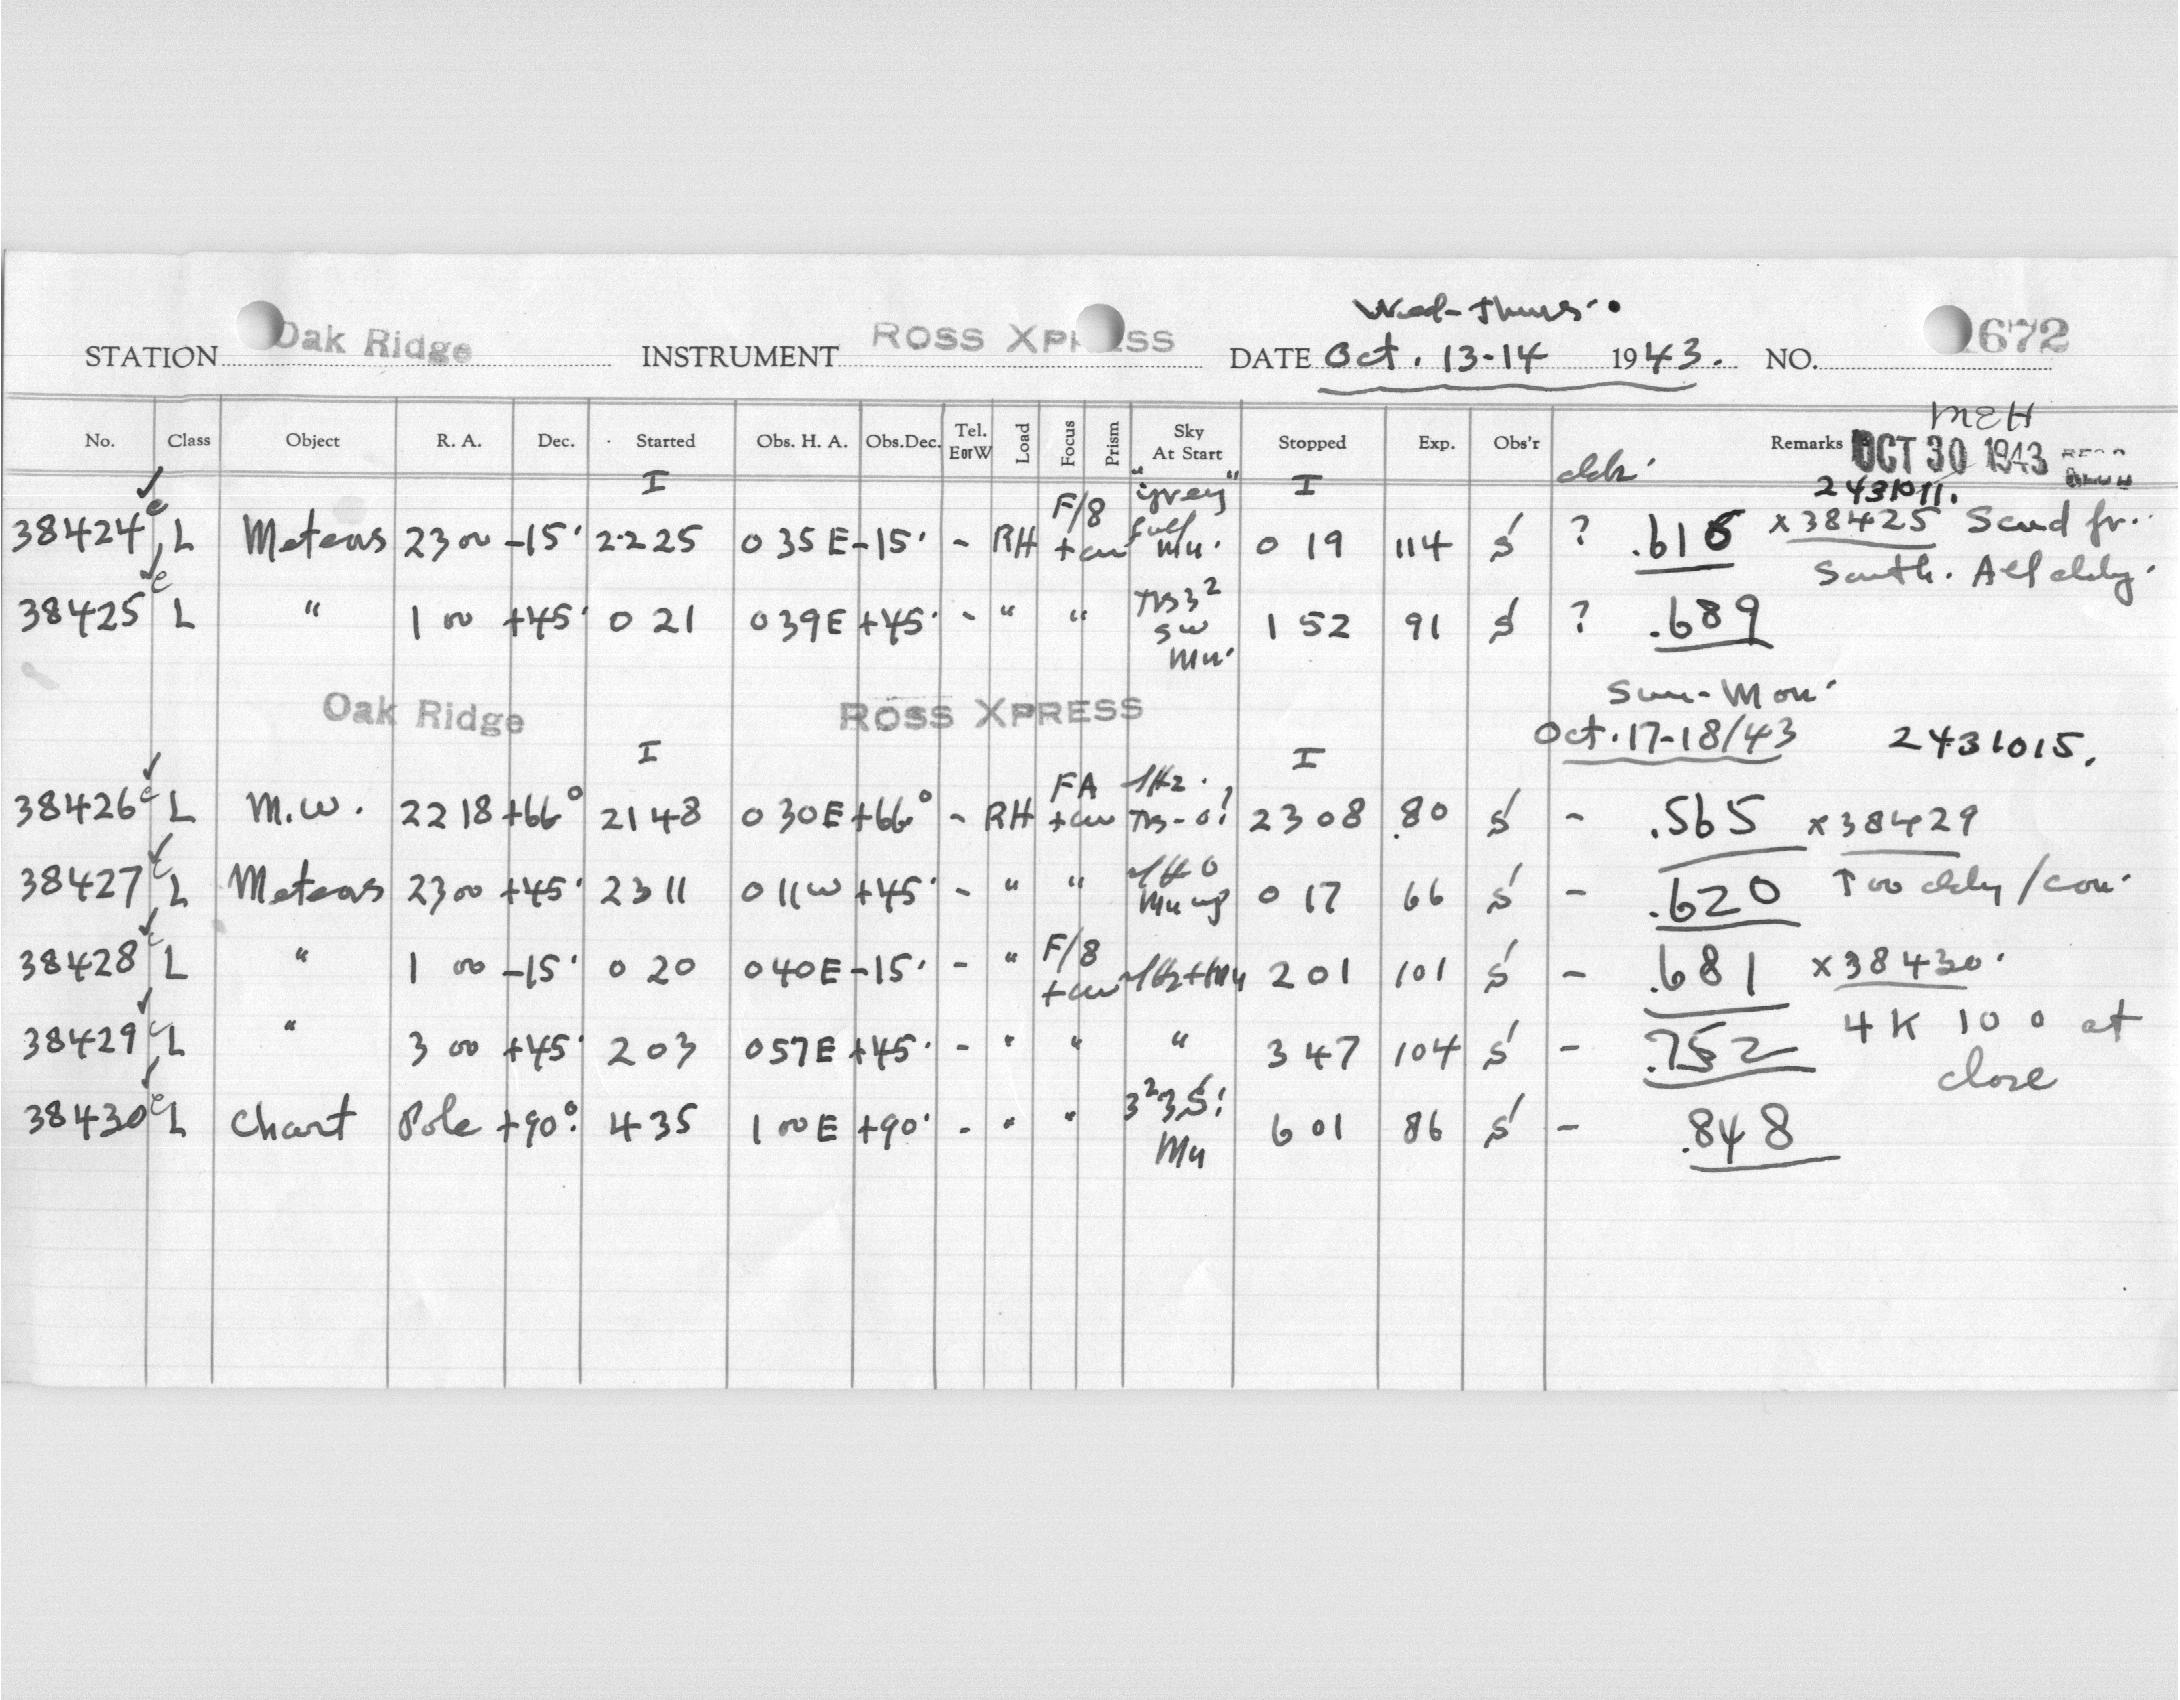 Wed-Thurs.
STATION Oak Ridge INSTRUMENT ROSS XPRESS DATE Oct. 13-14 1943. NO. 672
No. Class Object R. A. Dec. Started Obs. H. A. Obs.Dec. Tel. EorW Load Focus Prism Sky At Start Stopped Exp. Obs'r Remarks
MEH
OCT 30 1943
I "grey" I 2431011.
38424 L Meteors 23 00 -15° 22 25 0 35 E -15° - RH F/8 full Mn. 0 19 114 S ? .618 x38425 Scud fr.
South.
38425 L " 1 00 +45° 0 21 0 39 E +45° - " " SW Mn. 1 52 91 S ? .689
Oak Ridge ROSS XPRESS Sun-Mon.
Oct. 17-18/43 2431015.
I I
38426 L M.W. 22 18 +66° 21 48 0 30 E +66° - RH FA 23 08 80 S - .565 x38429
38427 L Meteors 23 00 +45° 23 11 0 11 W +45° - " " 0 17 66 S - .620
38428 L " 1 00 -15° 0 20 0 40 E -15° - " F/8 2 01 101 S - .681 x38430.
38429 L " 3 00 +45° 2 03 0 57 E +45° - " " " 3 47 104 S - .752 4 K 10 0 at
close
38430 L Chart Pole +90° 4 35 1 00 E +90° - " " Mn 6 01 86 S - .848